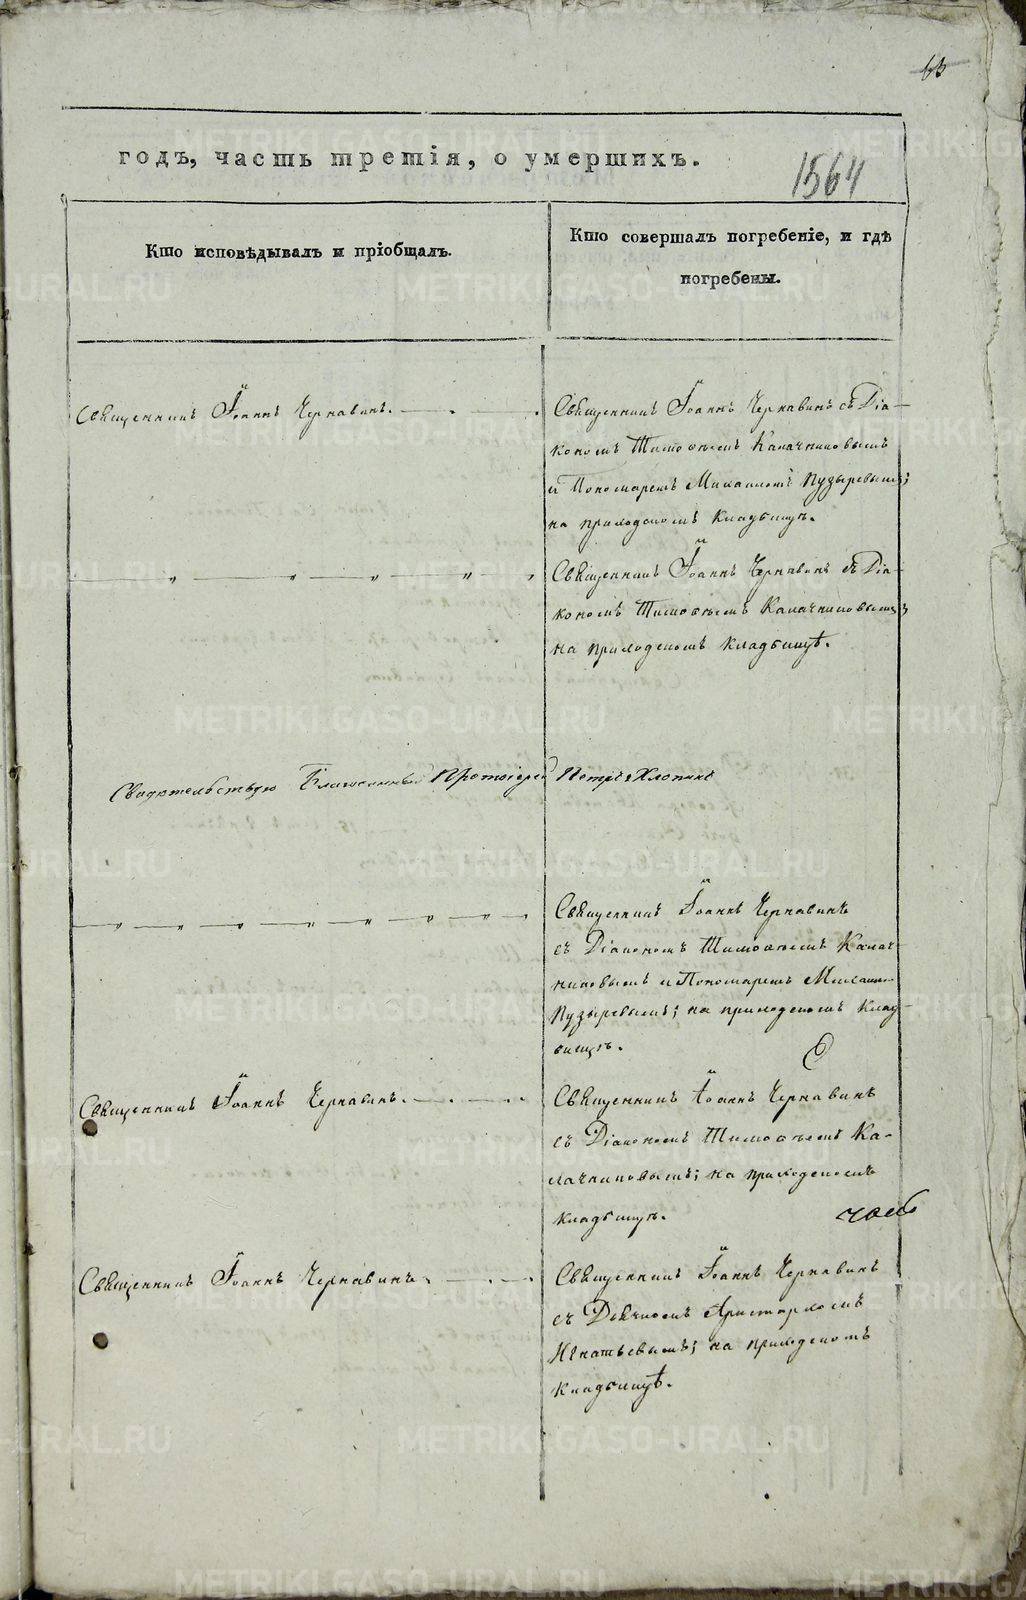 63
годъ, часть третія, о умершихъ.
1564
Кто исповѣдывалъ и пріобщалъ.
Кто совершалъ погребеніе, и гдѣ
погребены.
Священникъ Іоаннъ Чернавинъ.
Священникъ Іоаннъ Чернавинъ съ Діа-
кономъ Тимоѳеемъ Калачниковымъ
и Пономаремъ Михаиломъ Пузыревымъ;
на приходскомъ кладбищѣ.
Священникъ Іоаннъ Чернавинъ съ Діа-
кономъ Тимоѳеемъ Калачниковымъ;
на приходскомъ кладбищѣ.
Свидѣтельствую Благочинный Протоіерей Петръ Хлопинъ
Священникъ Іоаннъ Чернавинъ
съ Діакономъ Тимоѳеемъ Калач-
никовымъ и Пономаремъ Михаиломъ
Пузыревымъ; на приходскомъ клад-
бищѣ.
Священникъ Іоаннъ Чернавинъ.
Священникъ Іоаннъ Чернавинъ
съ Діакономъ Тимоѳеемъ Ка-
лачниковымъ; на приходскомъ
кладбищѣ.
Священникъ Іоаннъ Чернавинъ.
Священникъ Іоаннъ Чернавинъ
съ Дьячкомъ Аристархомъ
Игнатьевымъ; на приходскомъ
кладбищѣ.
METRIKI.GASO-URAL.RU